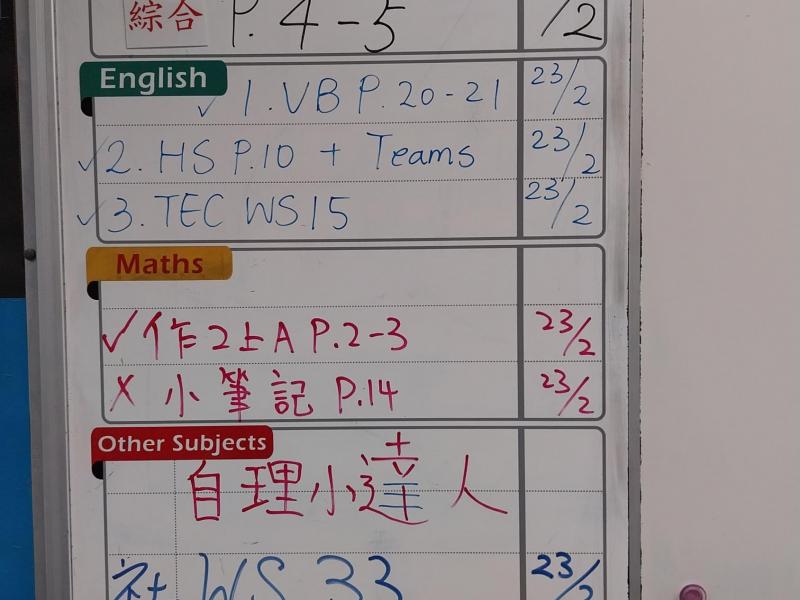 綜合 P. 4-5 /2
English
✓ 1. VB P. 20-21 23/2
✓ 2. HS P.10 + Teams 23/2
✓ 3. TEC WS 15 23/2
Maths
✓ 作2上A P.2-3 23/2
x 小筆記 P.14 23/2
Other Subjects
自理小達人
社 WS 33 23/2